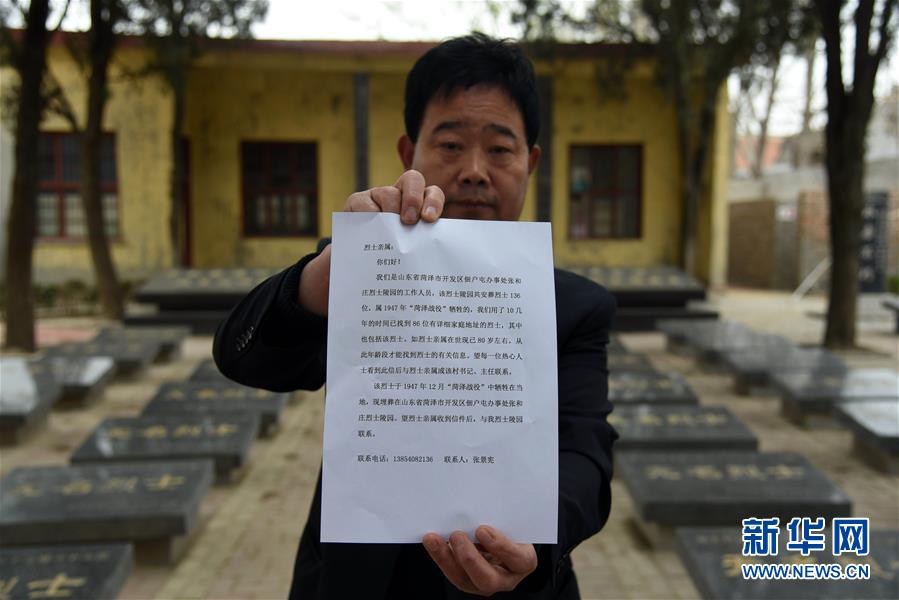 烈士亲属:
你们好!
我们是山东省菏泽市开发区佃户屯办事处张和
庄烈士陵园的工作人员, 该烈士陵园共安葬烈士 136
位, 属 1947 年“菏泽战役”牺牲的。我们用了 10 几
年的时间已找到 86 位有详细家庭地址的烈士, 其中
也包括该烈士。如烈士亲属在世现已 80 岁左右, 从
此年龄段才能找到烈士的有关信息。望每一位热心人
士看到此信后与烈士亲属或该村书记、主任联系。
该烈士于 1947 年 12 月“菏泽战役”中牺牲在当
地, 现埋葬在山东省菏泽市开发区佃户屯办事处张和
庄烈士陵园。望烈士亲属收到信件后, 与我烈士陵园
联系。
联系电话: 13854082136 联系人: 张景宪
无名烈士
无名烈士
无名烈士
无名烈士
烈士
新华网
WWW.NEWS.CN